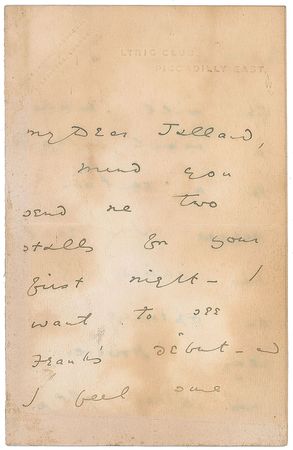 LYRIC CLUB,
PICCADILLY EAST.
My Dear
mind you
send me two
stalls for your
first night – I
want to see
Frank's début –
I feel sure